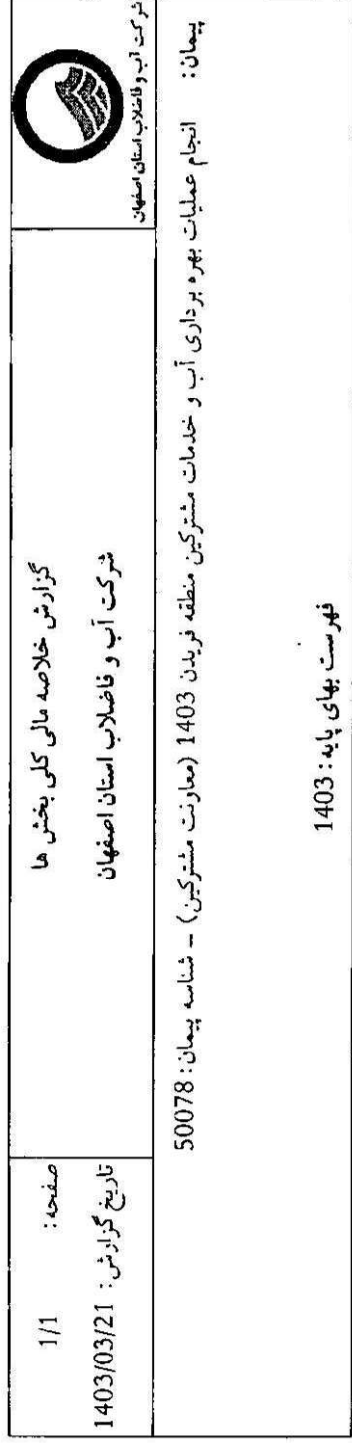 شرکت آب و فاضلاب استان اصفهان
گزارش خلاصه مالی کلی بخش ها
شرکت آب و فاضلاب استان اصفهان
صفحه : 1/1
تاریخ گزارش : 1403/03/21
پیمان : انجام عملیات بهره برداری آب و خدمات مشترکین منطقه فریدن 1403 (معاونت مشترکین) - شناسه پیمان : 50078
فهرست بهای پایه : 1403